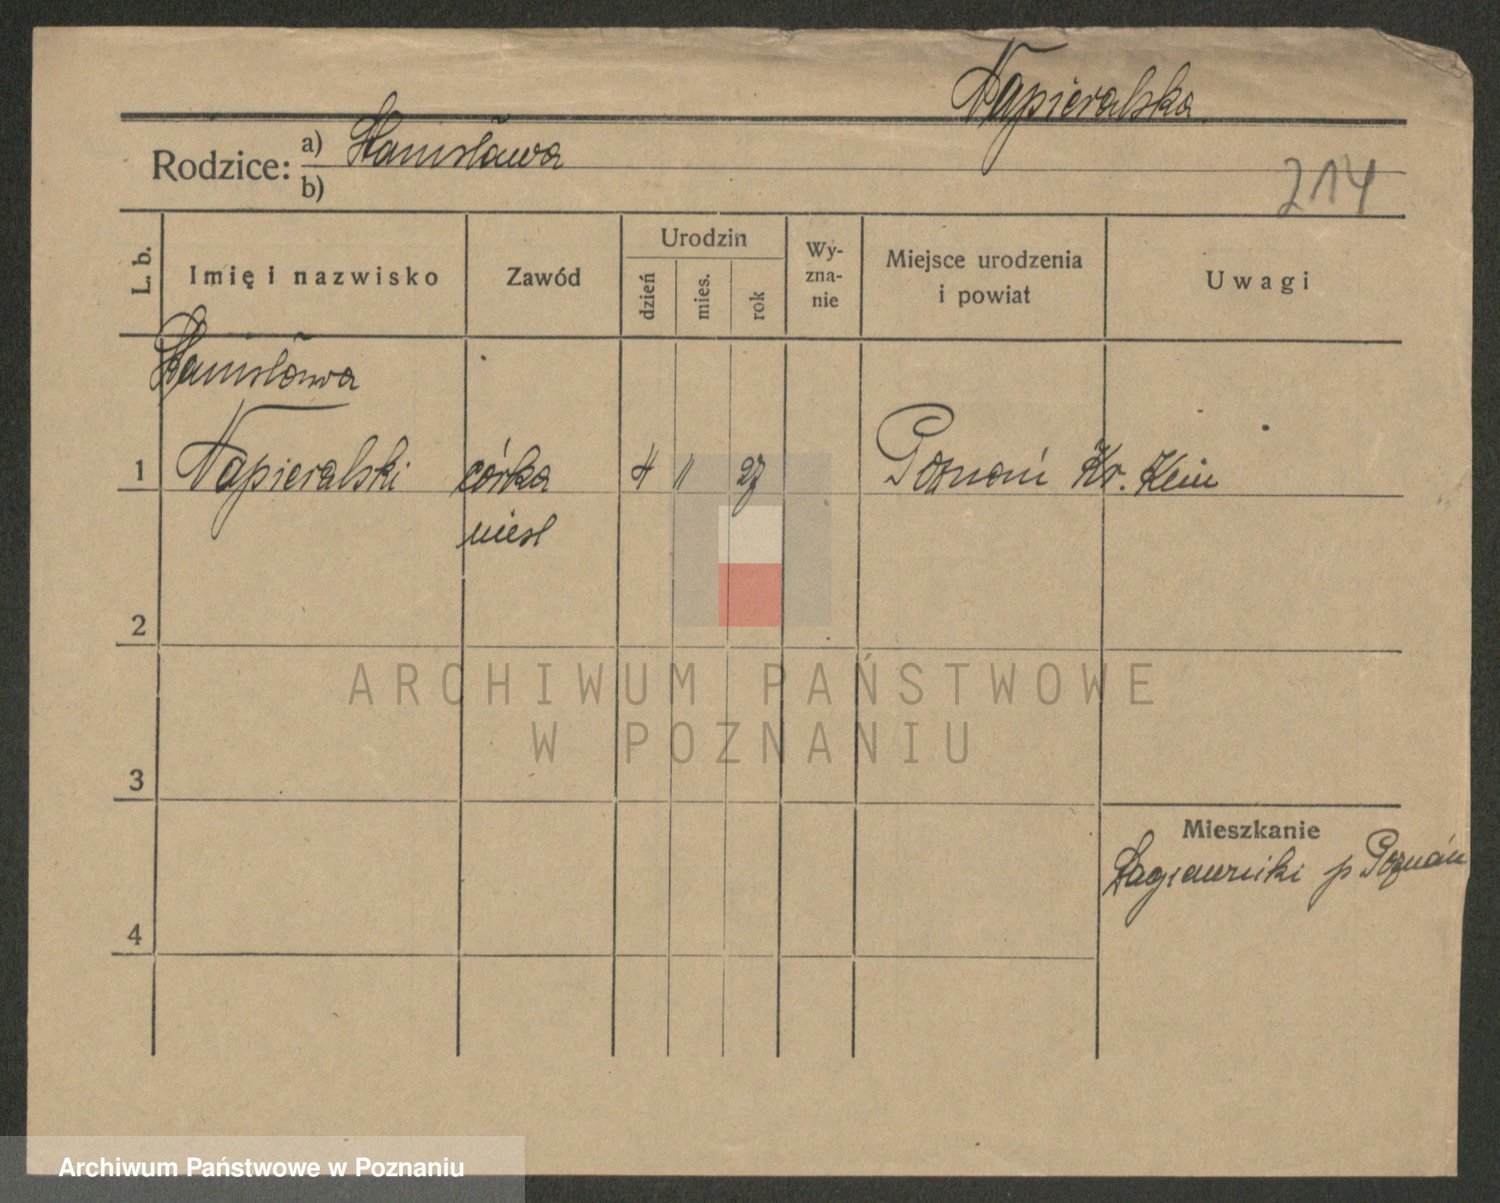 Napieralska
Rodzice: a) Stanisława
b)
214
L. b.
Imię i nazwisko
Zawód
Urodzin
dzień
mies.
rok
Wy-
zna-
nie
Miejsce urodzenia
i powiat
Uwagi
Stanisława
1 Napieralski córka 4 11 27 Poznań Kr.
niesl
2
3
4
Mieszkanie
Łagiewniki p Poznań
ARCHIWUM PAŃSTWOWE
W POZNANIU
Archiwum Państwowe w Poznaniu